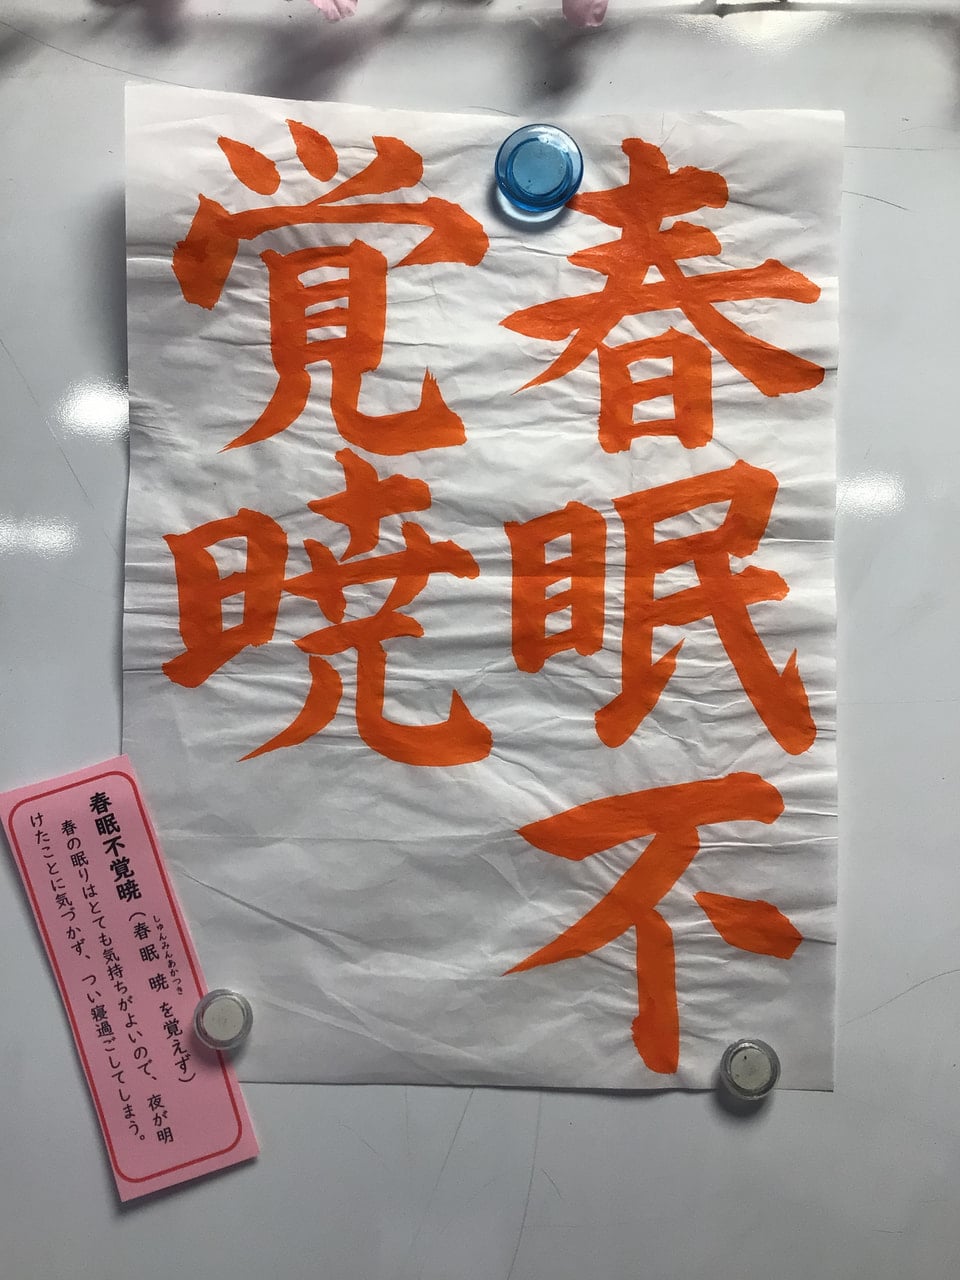 春眠不
覚暁
春眠不覚暁(春眠暁を覚えず)
しゅんみんあかつき
春の眠りはとても気持ちがよいので、夜が明
けたことに気づかず、つい寝過ごしてしまう。